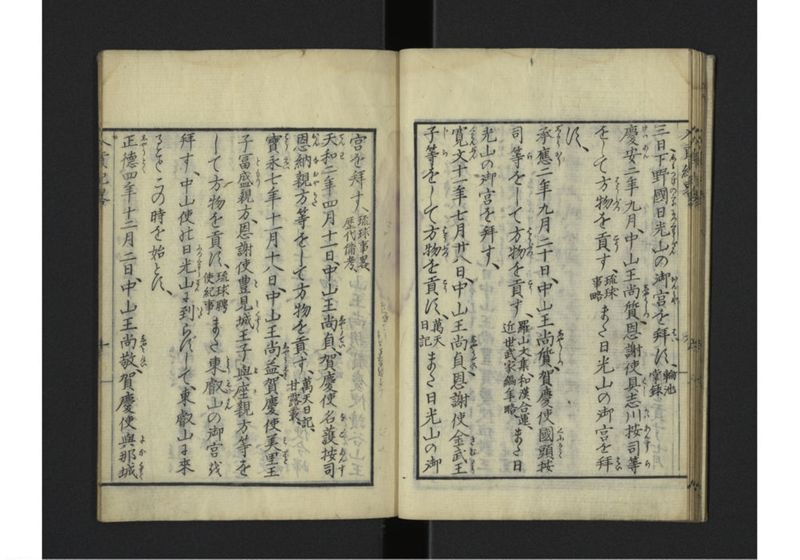 三日下野國日光山の御宮を拜す、輪池掌録
慶安二年九月、中山王尚質恩謝使具志川按司等
をして方物を貢す、琉球事略 また日光山の御宮を拜
す、
承應二年九月二十日中山王尚質賀慶使國頭按
司等をして方物を貢す、羅山文集和漢合運、近世武家編年略 また日
光山の御宮を拜す、
寛文十一年七月廿八日、中山王尚貞恩謝使金武王
子等をして方物を貢す、萬天日記 また日光山の御
宮を拜す、琉球事畧、歴代備考、
天和二年四月十一日、中山王尚貞、賀慶使名護按司
恩納親方等をして方物を貢す、萬天日記、甘露叢、
寶永七年十一月十八日、中山王尚益賀慶使美里王
子富盛親方恩謝使豊見城王子與座親方等を
して方物を貢す、琉球聘使紀事 また東叡山の御宮を
拜す、中山使の日光山に到らずして東叡山に來
ることこの時を始とす、
正德四年十二月二日、中山王尚敬、賀慶使與那城